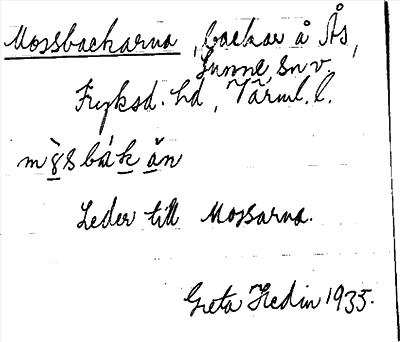 Mossbackarna, backar å Ås,
Sunne sn v.
Fryksd. hd, Värml. l.
mɣ̀sbákăn
Leder till Mossarna.
Greta Hedin 1935.